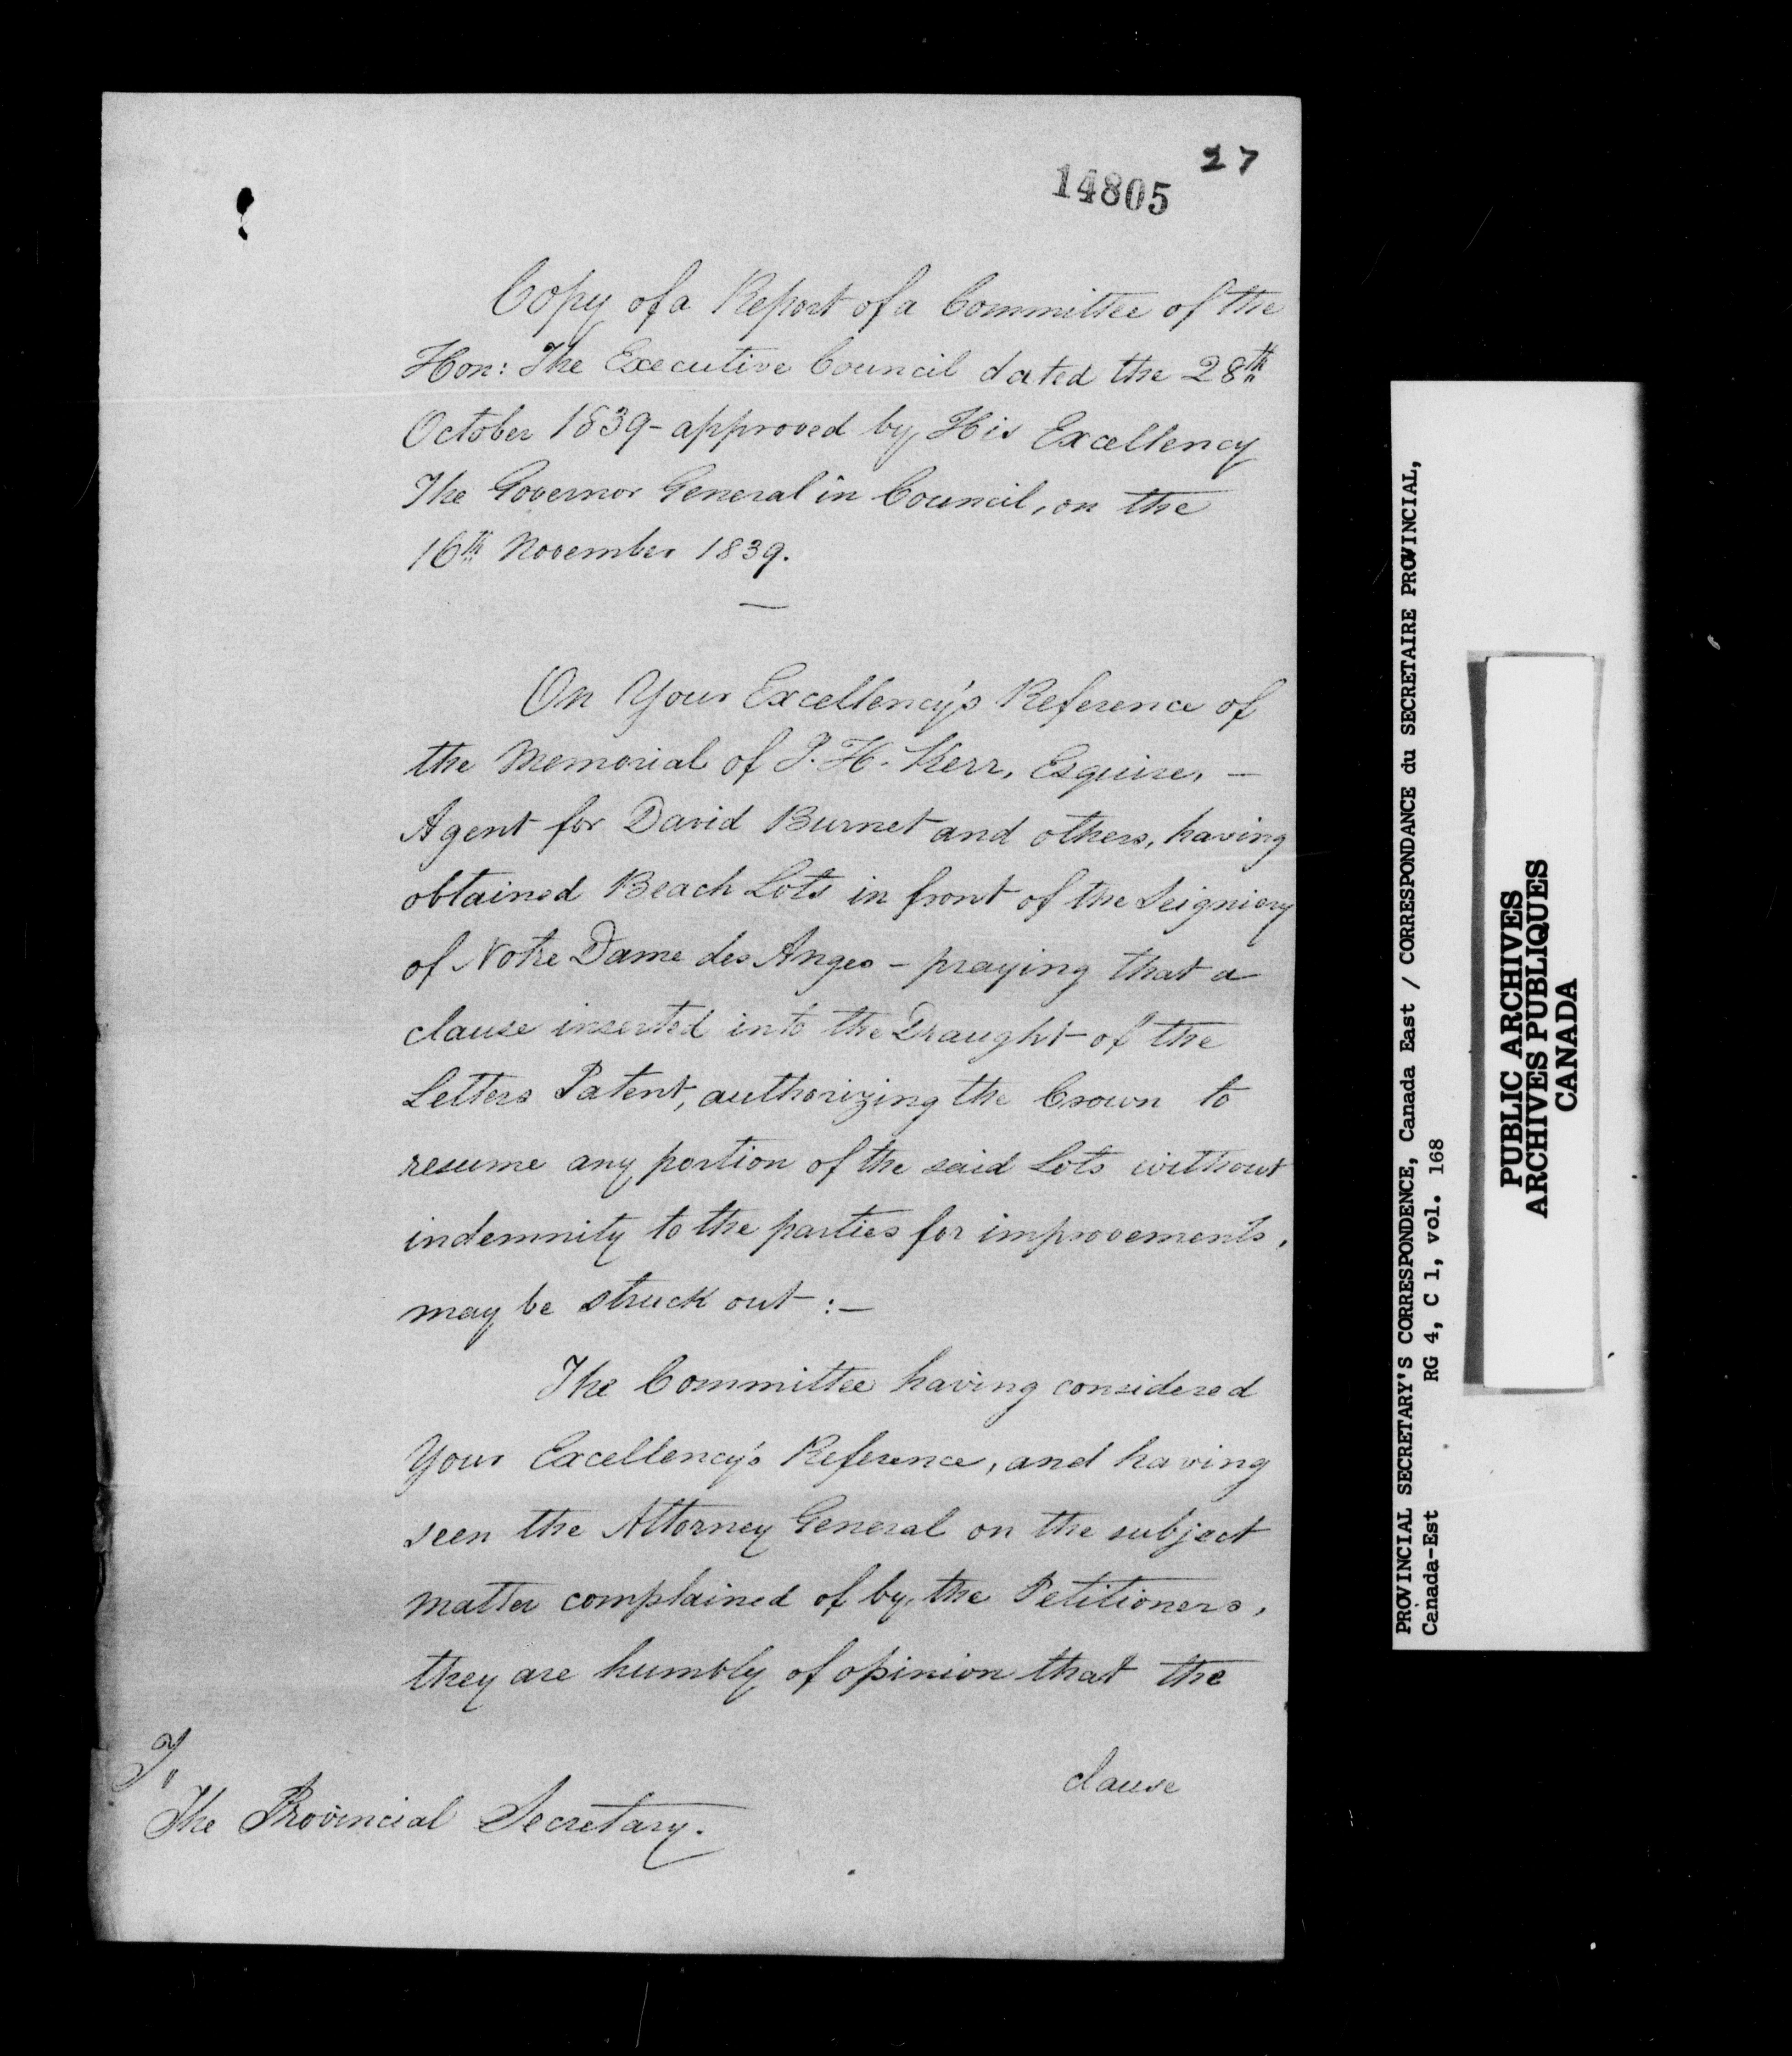 27
14805
Copy of a Report of a Committee of the
Hon: The Executive Council dated the 28th
October 1839 - approved by His Excellency
The Governor General in Council, on the
16th November 1839.
On Your Excellency's Reference of
the Memorial of J. H. Kerr, Esquire, -
Agent for David Burnet and others, having
obtained Beach Lots in front of the Seigniory
of Notre Dame des Anges - praying that a
clause inserted into the Draught of the
Letters Patent, authorizing the Crown to
resume any portion of the said Lots without
indemnity to the parties for improvements,
may be struck out :-
The Committee having considered
Your Excellency's Reference, and having
seen the Attorney General on the subject
matter complained of by the Petitioners,
they are humbly of opinion that the
clause
To
The Provincial Secretary.
PROVINCIAL SECRETARY'S CORRESPONDENCE, Canada East / CORRESPONDANCE du SECRETAIRE PROVINCIAL,
Canada-Est RG 4, C 1, vol. 168
PUBLIC ARCHIVES
ARCHIVES PUBLIQUES
CANADA